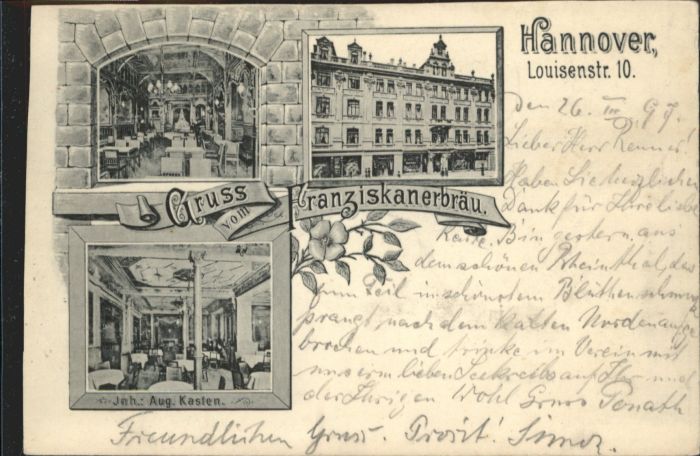 Hannover,
Louisenstr. 10.
Gruss vom Franziskanerbräu.
Inh.: Aug. Kasten.
den 26. III 97.
Lieber Herr Renner!
Haben Sie herzlichen
Dank für Ihre liebe
Karte. Bin gestern aus
dem schönen Rheinthal, das
zum Teil in schönstem Blüthenschmuck
prangt, nach dem kalten Norden aufge
brochen und trinke im Verein mit
unserm lieben Seekrebs auf Ihr und
der Ihrigen Wohl Gruss
Freundlichen Gruss. Prosit!